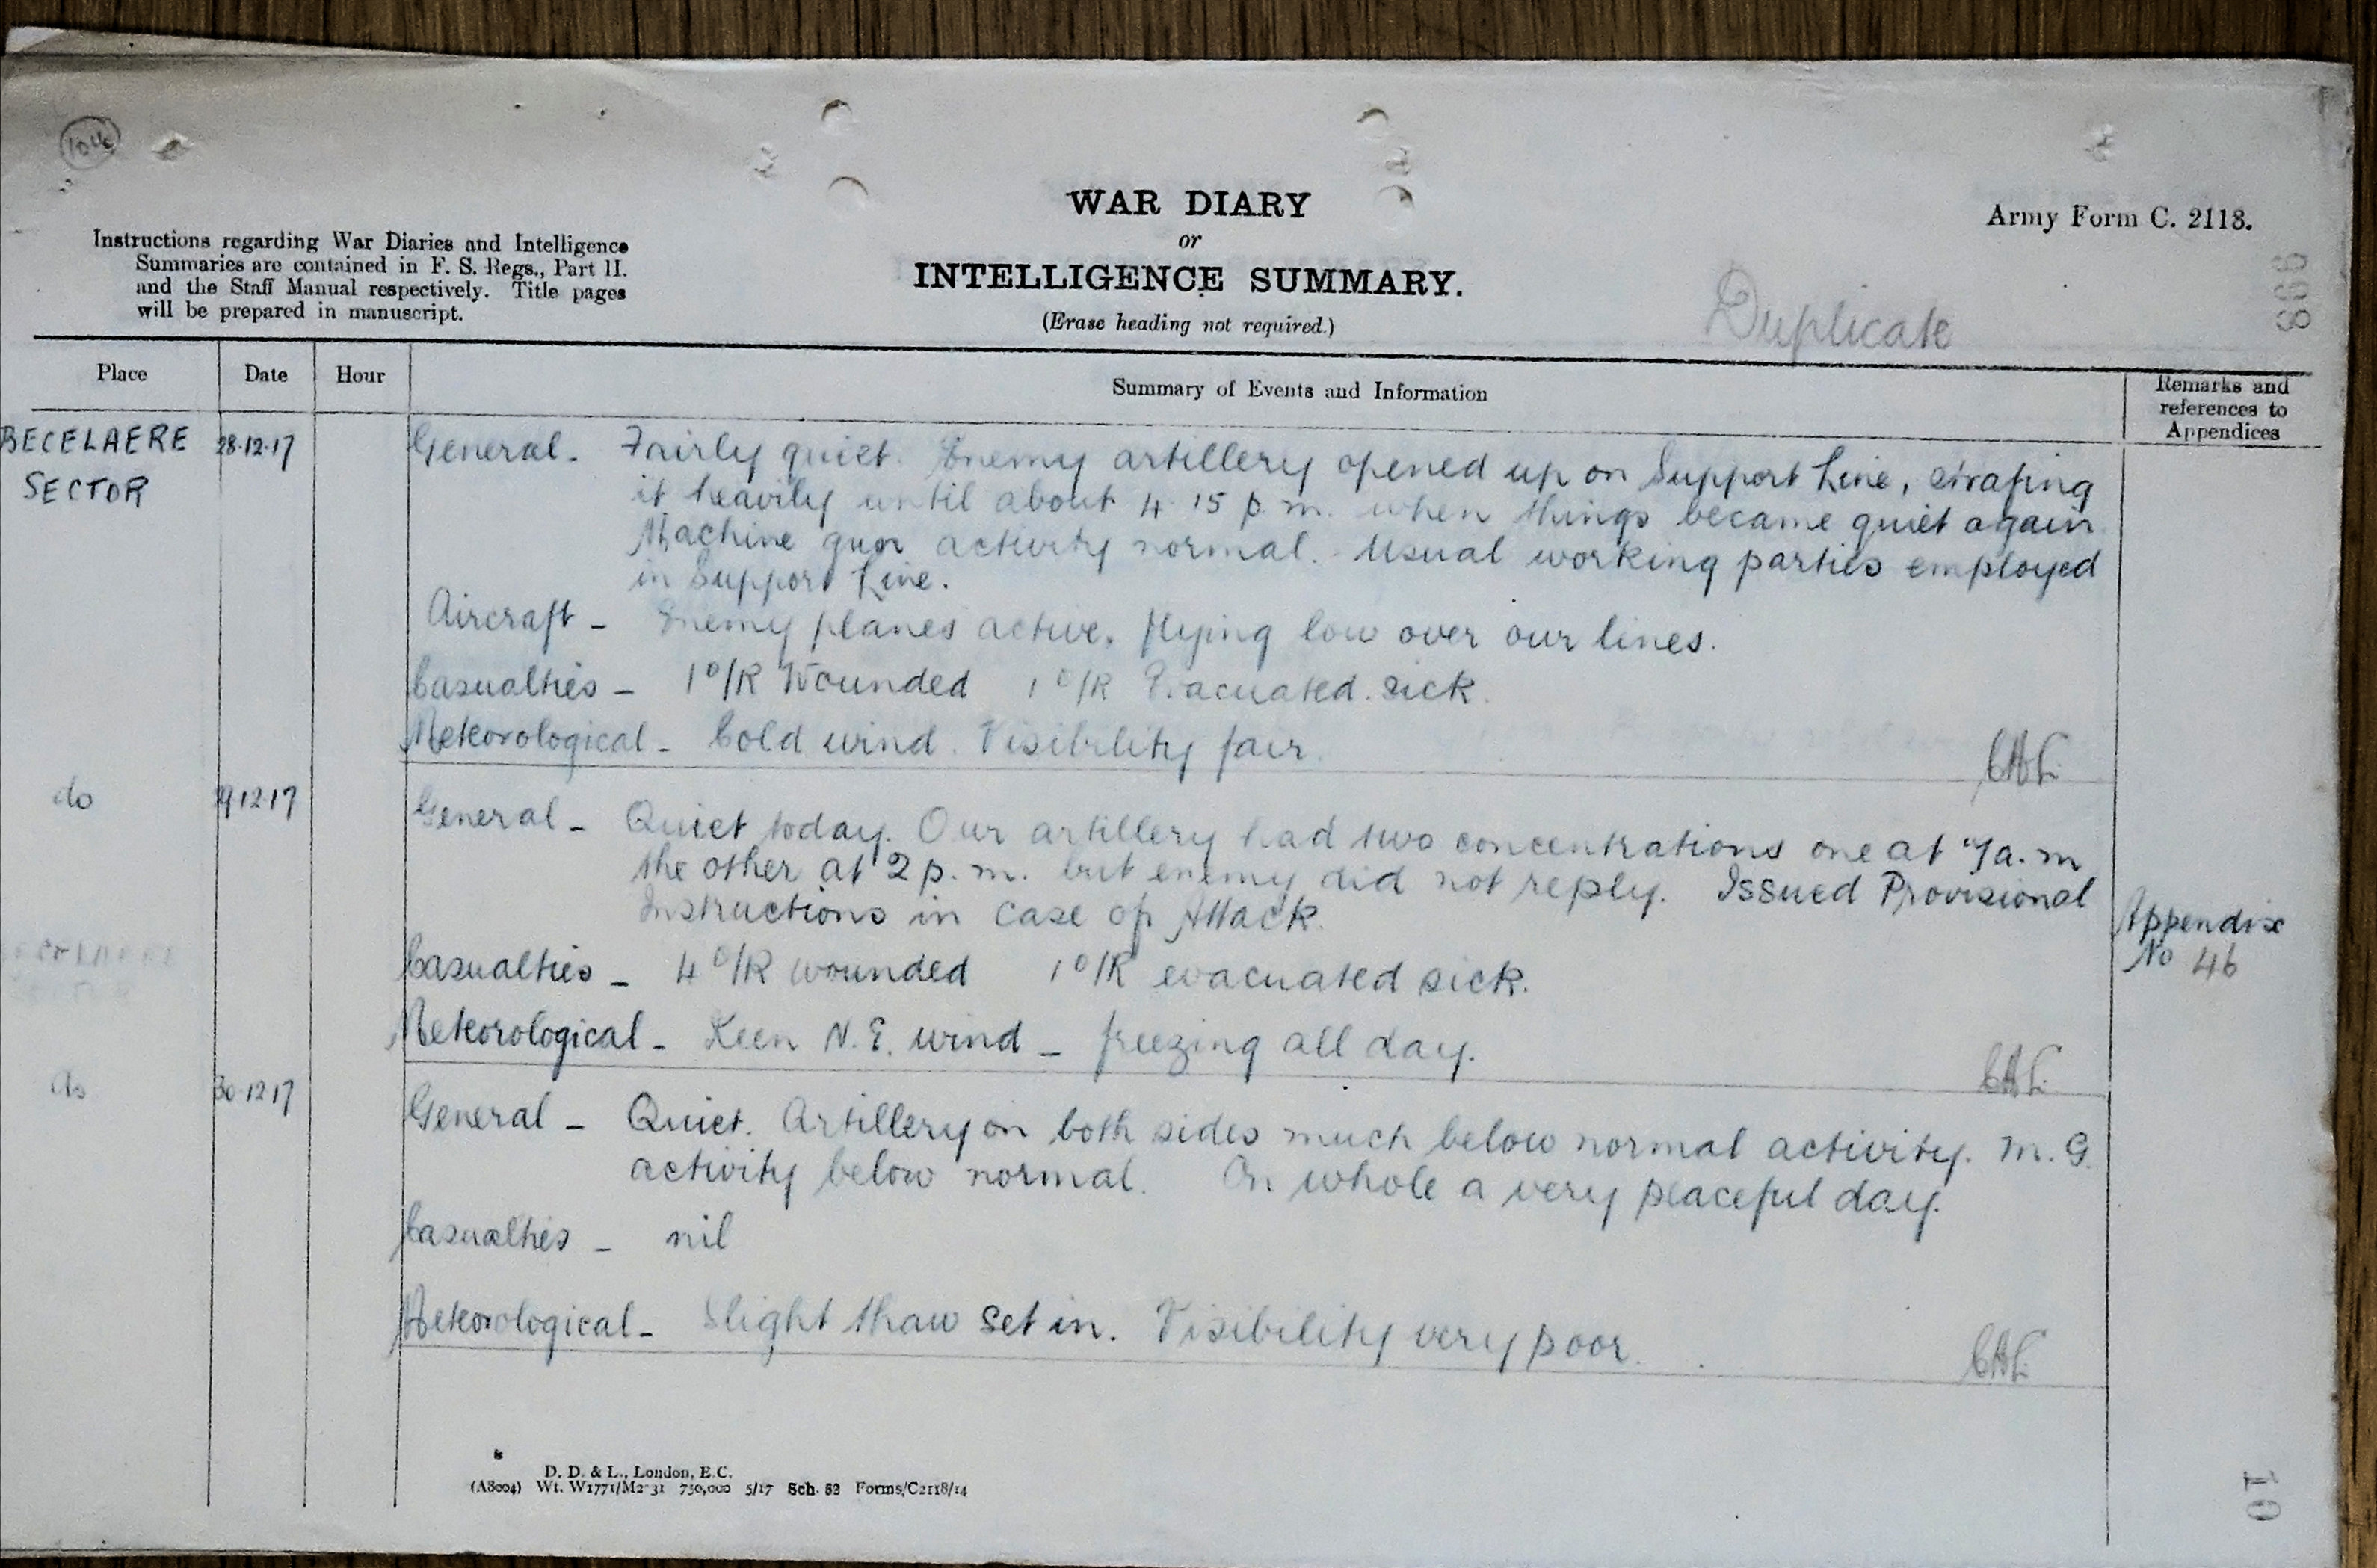 WAR DIARY
or
INTELLIGENCE SUMMARY.
(Erase heading not required.)
Army Form C. 2118.
Instructions regarding War Diaries and Intelligence
Summaries are contained in F. S. Regs., Part II.
and the Staff Manual respectively. Title pages
will be prepared in manuscript.
Duplicate
888
Place Date Hour Summary of Events and Information Remarks and
references to
Appendices
BECELAERE 28.12.17 General - Fairly quiet. Enemy artillery opened up on Support Line, strafing
SECTOR it heavily until about 4.15 p.m. when things became quiet again
Machine gun activity normal. Usual working parties employed
in Support Line.
Aircraft - Enemy planes active, flying low over our lines.
Casualties - 1 O/R Wounded 1 O/R Evacuated sick.
Meteorological - Cold wind. Visibility fair.
do 29.12.17 General - Quiet today. Our artillery had two concentrations one at 7 a.m
the other at 2 p.m. but enemy did not reply. Issued Provisional
Instructions in case of Attack. Appendix
No 46
BECELAERE
SECTOR
Casualties - 4 O/R wounded 1 O/R evacuated sick.
Meteorological - Keen N.E. wind - freezing all day.
do 30.12.17 General - Quiet. Artillery on both sides much below normal activity. M.G.
activity below normal. On whole a very peaceful day.
Casualties - nil
Meteorological - Slight thaw set in. Visibility very poor.
D. D. & L., London, E.C.
(A8004) Wt. W1771/M2031 750,000 5/17 Sch. 52 Forms/C2118/14
10